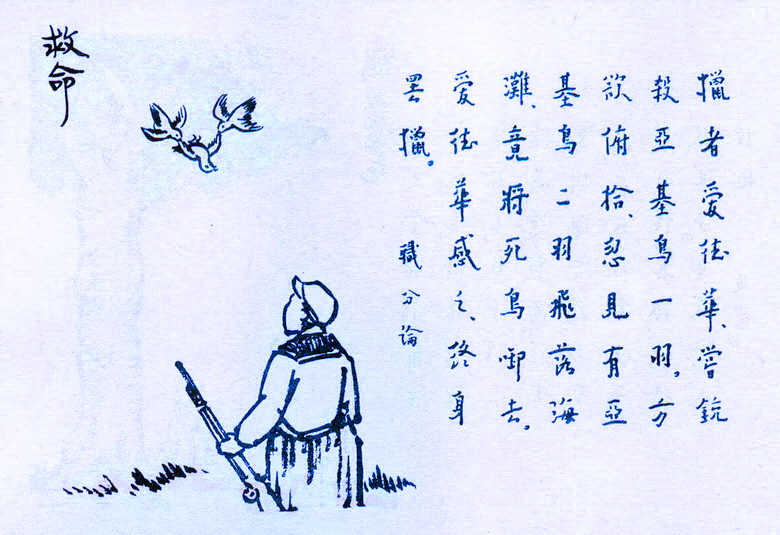 救命
獵者愛德華、嘗銃
殺亞基鳥一羽。方
欲俯拾、忽見有亞
基鳥二羽飛落海
灘、竟將死鳥啣去。
愛德華感之、終身
罢獵。 職分論